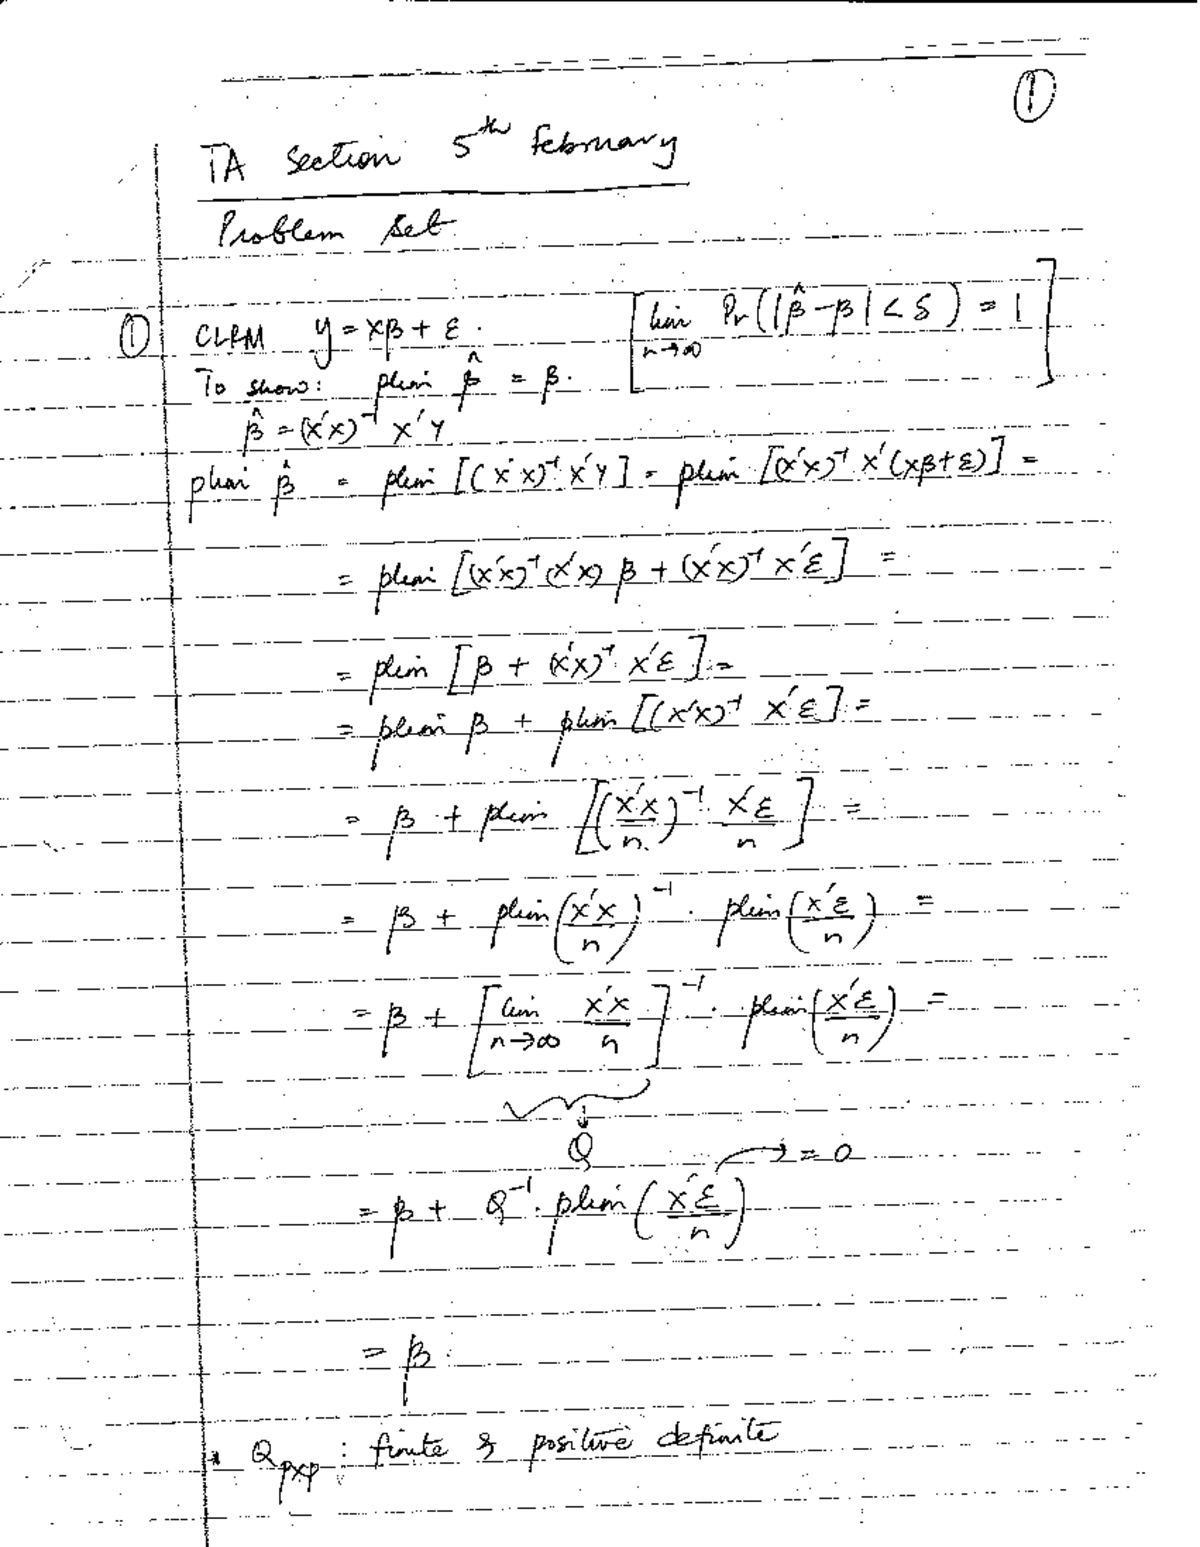 ①
TA Section 5th February
Problem Set
① CLRM y = xβ + ε. [lim n→∞ Pr(|β̂ - β| < δ) = 1]
To show: plim β̂ = β.
β̂ = (x'x)⁻¹ x'y
plim β̂ = plim [(x'x)⁻¹ x'y] = plim [(x'x)⁻¹ x'(xβ+ε)] =
= plim [(x'x)⁻¹ (x'x) β + (x'x)⁻¹ x'ε] =
= plim [β + (x'x)⁻¹ x'ε] =
= plim β + plim [(x'x)⁻¹ x'ε] =
= β + plim [(x'x/n)⁻¹ x'ε/n] =
= β + plim (x'x/n)⁻¹ · plim (x'ε/n) =
= β + [lim n→∞ x'x/n]⁻¹ · plim (x'ε/n) =
Q
→ = 0
= β + Q⁻¹ · plim (x'ε/n)
= β.
* Q pxp : finite & positive definite